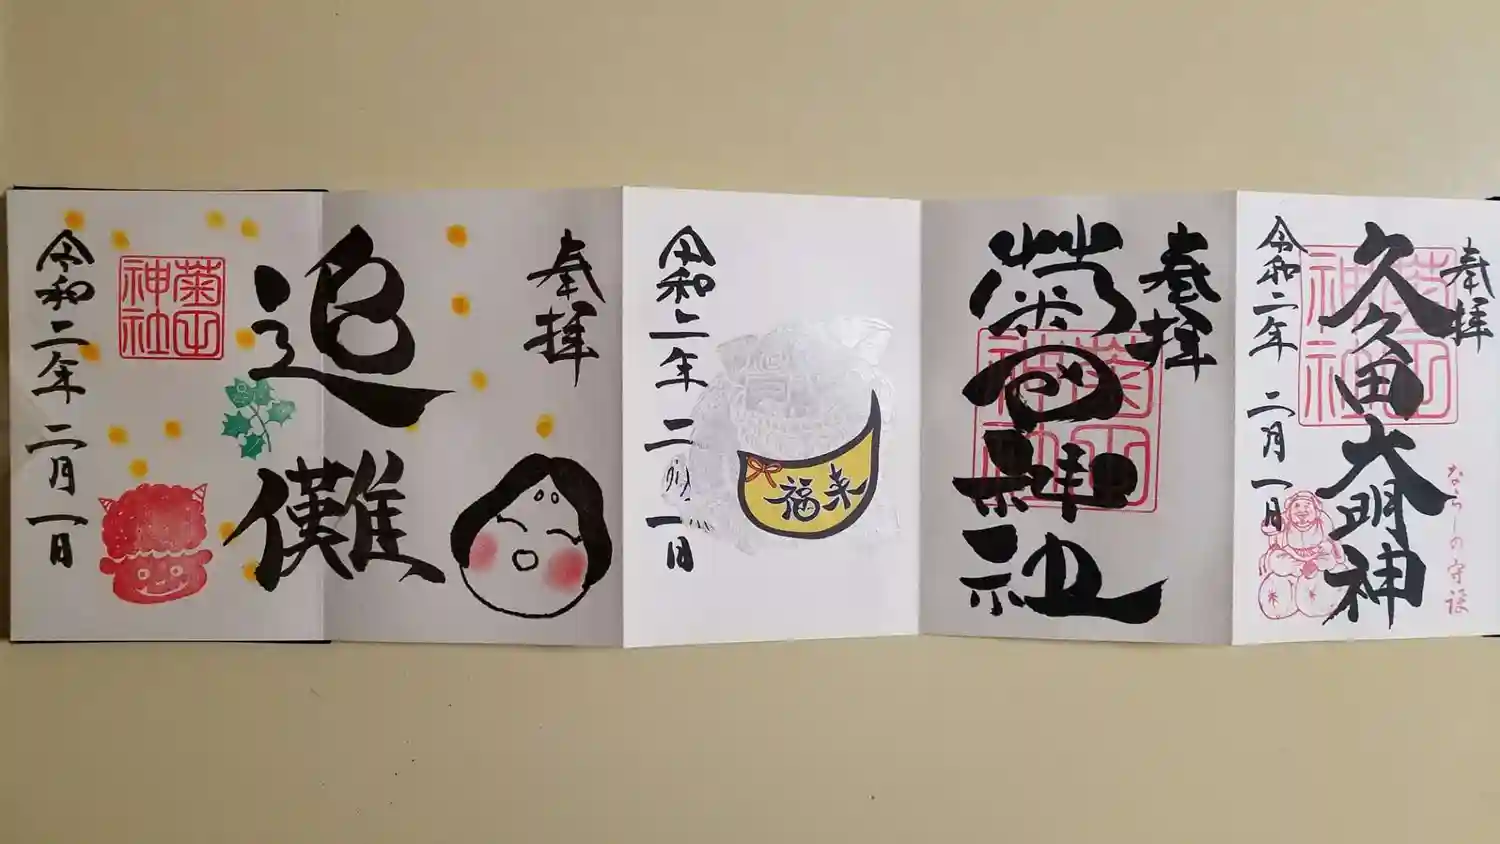 奉拝
久久田大明神
ならしの守護
菊田神社
令和二年 二月 一日
奉拝
菊田神社
菊田神社
福来
令和二年 二月 一日
奉拝
追儺
菊田神社
令和二年 二月 一日